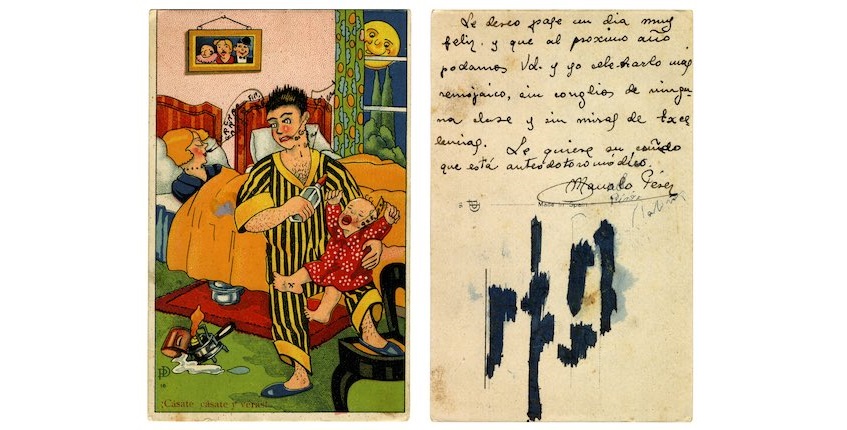 ¡Cásate cásate y verás!
Le deseo pase un dia muy
feliz. y que al proximo año
podamos Vd. y yo celebrarlo mas
remojaico, sin conglios de ningu-
na clase y sin miras de Exce-
lencias. Le quiere su cuñado
que está
Manolo Pérez
Made in Spain